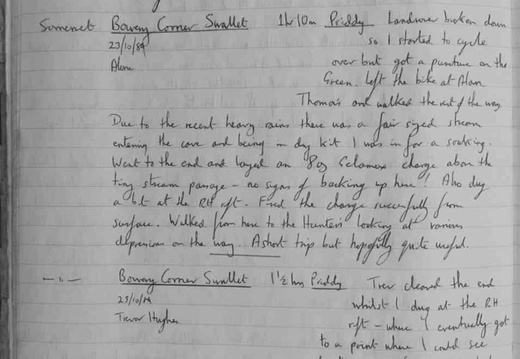 Somerset Bowery Corner Swallet 1hr 10m Priddy Landrover broken down
23/10/89 so I started to cycle
Alone over but got a puncture on the
Green. Left the bike at Alan
Thomas's and walked the rest of the way.
Due to the recent heavy rains there was a fair sized stream
entering the cave and being in dry kit I was in for a soaking.
Went to the end and layed an 8oz charge above the
tiny stream passage - no signs of backing up here! Also dug
a bit at the RH rift. Fired the charge successfully from
surface. Walked from here to the Hunters' looking at various
depressions on the way. A short trip but hopefully quite useful.
—"— Bowery Corner Swallet 1½hrs Priddy Trev cleared the end
25/10/89 whilst I dug at the RH
Trevor Hughes rift - where I eventually got
to a point where I could see